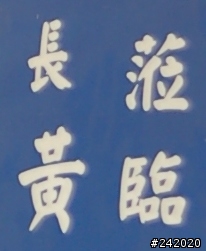 蒞臨
長黃
#242020